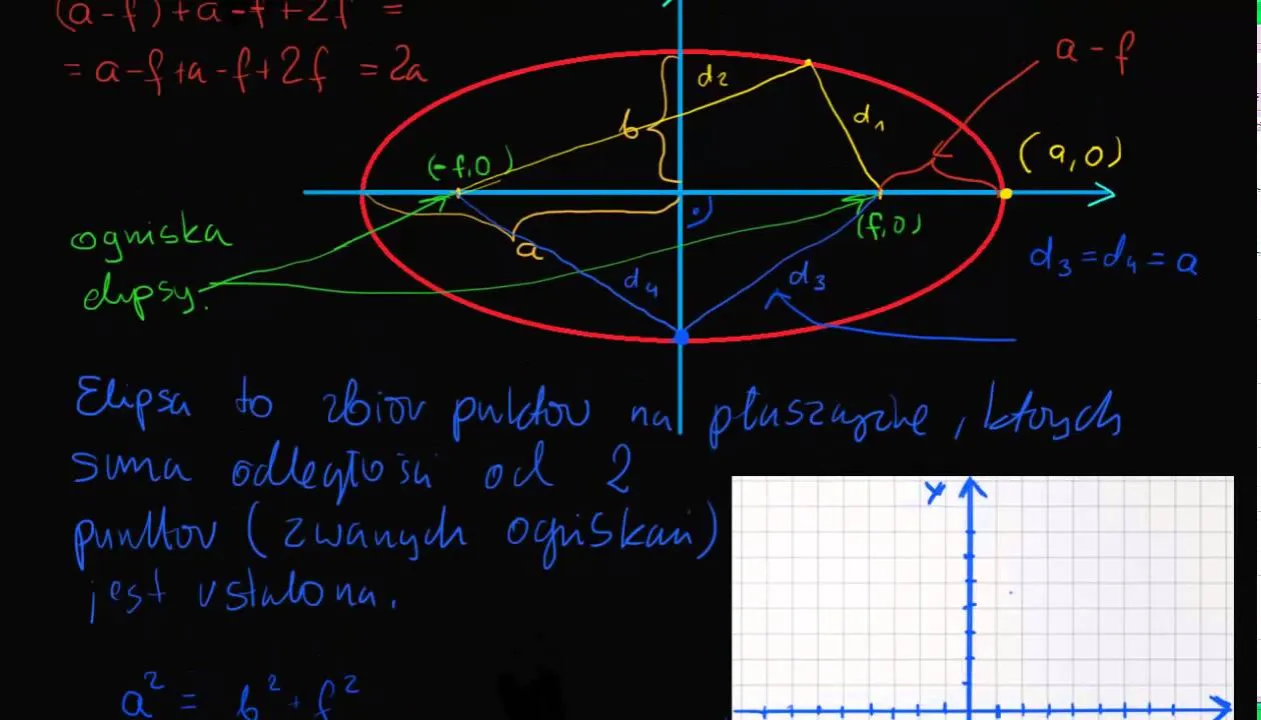 (a-f)+a-f+2f =
= a-f+a-f+2f = 2a
a - f
d₂
d₁
b
(a,0)
(-f,0)
(f,0)
ogniska
elipsy.
a
d₄
d₃
d₃=d₄=a
Elipsa to zbiov puktov na płuszczyźnie, ktorych
suma odległości od 2
punktov (zwanych ogniskami)
jest ustalona.
y
a² = b² + f²